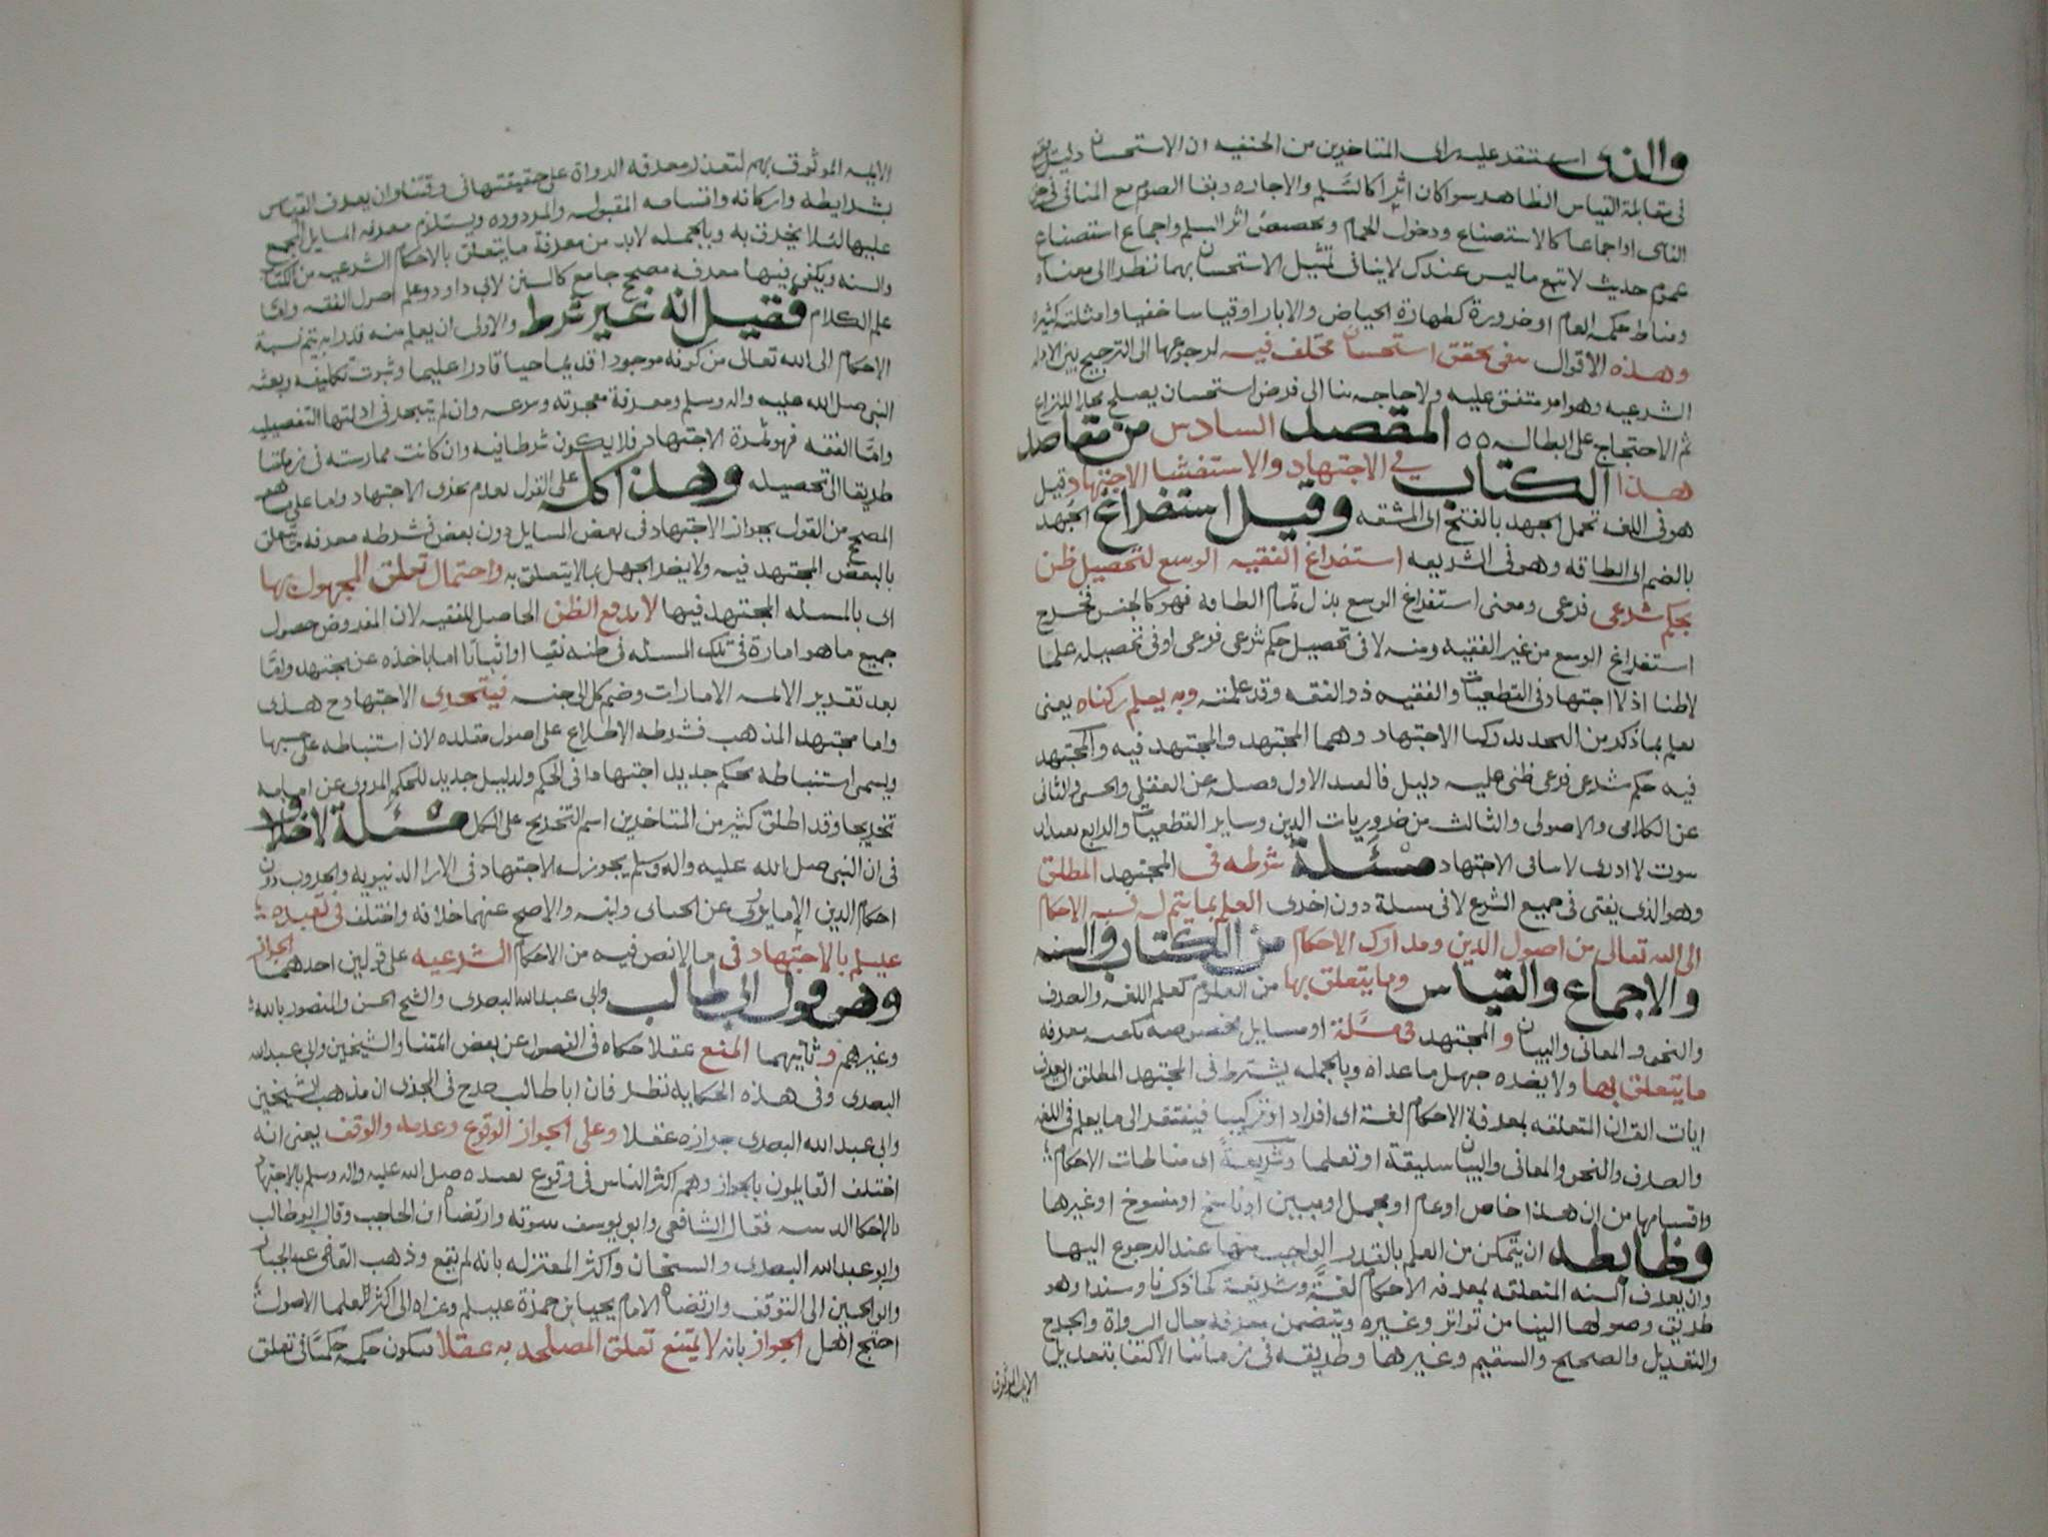 والذى استقر عليه راى المتاخرين من الحنفيه ان الاستحسان دليل
فى مقابلة القياس الظاهر سوا كان اثرا كالسلم والاجاره وبقا الصوم مع المنافى فى حق
الناسى او اجماعا كالاستصناع ودخول الحمام وتخصيص اثر السلم واجماع استصناع
عموم حديث لا تبع ما ليس عندك لا ينافى تمثيل الاستحسان بهما نظرا الى معناه
ومناط حكمه العام او ضرورة كطهارة الحياض والابار او قياسا خفيا وامثلته كثيره
وهذه الاقوال تنفى تحقق استحسان مختلف فيه لرجوعها الى الترجيح بين الادله
الشرعيه وهو امر متفق عليه ولا حاجه بنا الى فرض استحسان يصلح محلا للنزاع
ثم الاحتجاج على ابطاله ٥٥ المقصد السادس من مقاصد
هذا الكتاب في الاجتهاد والاستفتا الاجتهاد قيل
هو فى اللغه تحمل الجهد بالفتح اى المشقه وقيل استفراغ الجهد
بالضم اى الطاقه وهو فى الشريعه استفراغ الفقيه الوسع لتحصيل ظن
بحكم شرعى فرعى ومعنى استفراغ الوسع بذل تمام الطاقه فهو كالجنس فخرج
استفراغ الوسع من غير الفقيه ومنه لا فى تحصيل حكم شرعى فرعى او فى تحصيله علما
لا ظنا اذ لا اجتهاد فى القطعيات والفقيه ذو الفقه وقد علمته وبه يعلم ركناه يعنى
يعلم بما ذكر من التحديد ركنا الاجتهاد وهما المجتهد والمجتهد فيه والمجتهد
فيه حكم شرعى فرعى ظنى عليه دليل فالقيد الاول فصله عن العقلى والحسى والثانى
عن الكلامى والاصولى والثالث من ضروريات الدين وساير القطعيات والرابع
ثبوت لا ادرى لا ينافى الاجتهاد مسئلة شرطه فى المجتهد المطلق
وهو الذى يفتى فى جميع الشرع لا فى مسلة دون اخرى العلم بما يتم له نسبه الاحكام
الى الله تعالى من اصول الدين ومدارك الاحكام من الكتاب والسنه
والاجماع والقياس وما يتعلق بها من العلوم كعلم اللغه والصرف
والنحو والمعانى والبيان والمجتهد فى مسئلة او مسايل مخصوصه يكفيه معرفه
ما يتعلق بها ولا يضره جهل ما عداه وبالجمله يشترط فى المجتهد المطلق ان يعرف
ايات القران المتعلقه بمعرفة الاحكام لغة اى افراد او تركيبا فيفتقر الى ما يعلم فى اللغه
والصرف والنحو والمعانى والبيان سليقة او تعلما وشريعة اى مناطات الاحكام
واقسامها من ان هذا خاص او عام او مجمل او مبين او ناسخ او منسوخ او غيرها
وضابطه ان يتمكن من العلم بالقدر الواجب منها عند الرجوع اليها
وان يعرف السنه المتعلقه بمعرفه الاحكام لغة وشريعة كما ذكرنا وسندا وهو
طريق وصولها الينا من تواتر وغيره ويتضمن معرفه حال الرواة والجرح
والتعديل والصحيح والسقيم وغيرها وطريقه فى زماننا الاكتفا بتعديل
الايمه الموثوق
الايمه الموثوق بهم لتعذر معرفه الرواة على حقيقتها فى وقتنا وان يعرف القياس
بشرايطه واركانه واقسامه المقبوله والمردوده ويستلزم معرفه المسايل المجمع
عليها لئلا يخرق به وبالجمله لابد من معرفة ما يتعلق بالاحكام الشرعيه من الكتاب
والسنه ويكفى فيها معرفه مصحح جامع كالسنن لابى داود وعلم اصول الفقه واما
علم الكلام فقيل انه غير شرط والاولى ان يعلم منه قدرا به يتم نسبة
الاحكام الى الله تعالى من كونه موجودا قديما حيا قادرا عليما وثبوت تكليفه وبعثه
النبى صلى الله عليه واله وسلم ومعرفة معجزته وشرعه وان لم يتبحر فى ادلتها التفصيليه
واما الفقه فهو ثمرة الاجتهاد فلا يكون شرطا فيه وان كانت ممارسته فى زماننا
طريقا الى تحصيله وهذا كله على القول بعدم تجزى الاجتهاد واما على ما هو
الصحيح من القول بجواز الاجتهاد فى بعض المسايل دون بعض فشرطه معرفه ما يتعلق
بالبعض المجتهد فيه ولا يضر الجهل بما لا يتعلق به واحتمال تعلق المجهول بها
اى بالمسئله المجتهد فيها لا يدفع الظن الحاصل للفقيه لان المفروض حصول
جميع ما هو امارة فى تلك المسئله فى ظنه نفيا او اثباتا اما باخذه عن مجتهد واما
بعد تقرير الائمه الامارات وضم كل الى جنسه فيتجزى الاجتهاد ح هذى
واما مجتهد المذهب فشرطه الاطلاع على اصول مقلده لان استنباطه على حسبها
ويسمى استنباطه لحكم جديد اجتهادا فى الحكم ولدليل جديد للحكم المروى عن امامه
تخريجا وقد اطلق كثير من المتاخرين اسم التخريج على الكل مسئلة لا خلاف
فى ان النبى صلى الله عليه واله وسلم يجوز له الاجتهاد فى الارا الدنيويه والحروب دون
احكام الدين الا ما يروى عن الجباى وابنه والاصح عنهما خلافه واختلف فى تعبده
عليلم بالاجتهاد فى ما لا نص فيه من الاحكام الشرعيه على قولين احدهما الجواز
وهو قول ابى طالب وابى عبدالله البصرى والشيخ الحسن والمنصور بالله
وغيرهم وثانيهما المنع عقلا حكاه فى الفصول عن بعض ائمتنا والشيخين وابى عبدالله
البصرى وفى هذه الحكايه نظر فان ابا طالب صرح فى المجزى ان مذهب الشيخين
وابى عبد الله البصرى جوازه عقلا وعلى الجواز الوقوع وعدمه والوقف يعنى انه
اختلف القايلون بالجواز وهم اكثر الناس فى وقوع تعبده صلى الله عليه واله وسلم بالاجتهاد
فقال الشافعى وابو يوسف بثبوته وارتضاه ابن الحاجب وقال ابو طالب
وابو عبدالله البصرى والشيخان واكثر المعتزله بانه لم يقع وذهب القاضى عبد الجبار
وابو الحسين الى التوقف وارتضاه الامام يحيى بن حمزة عليلم وعزاه الى اكثر العلما الاصول
احتج اهل الجواز بانه لا يمتنع تعلق المصلحه به عقلا فيكون حكمه حكمنا فى تعلق